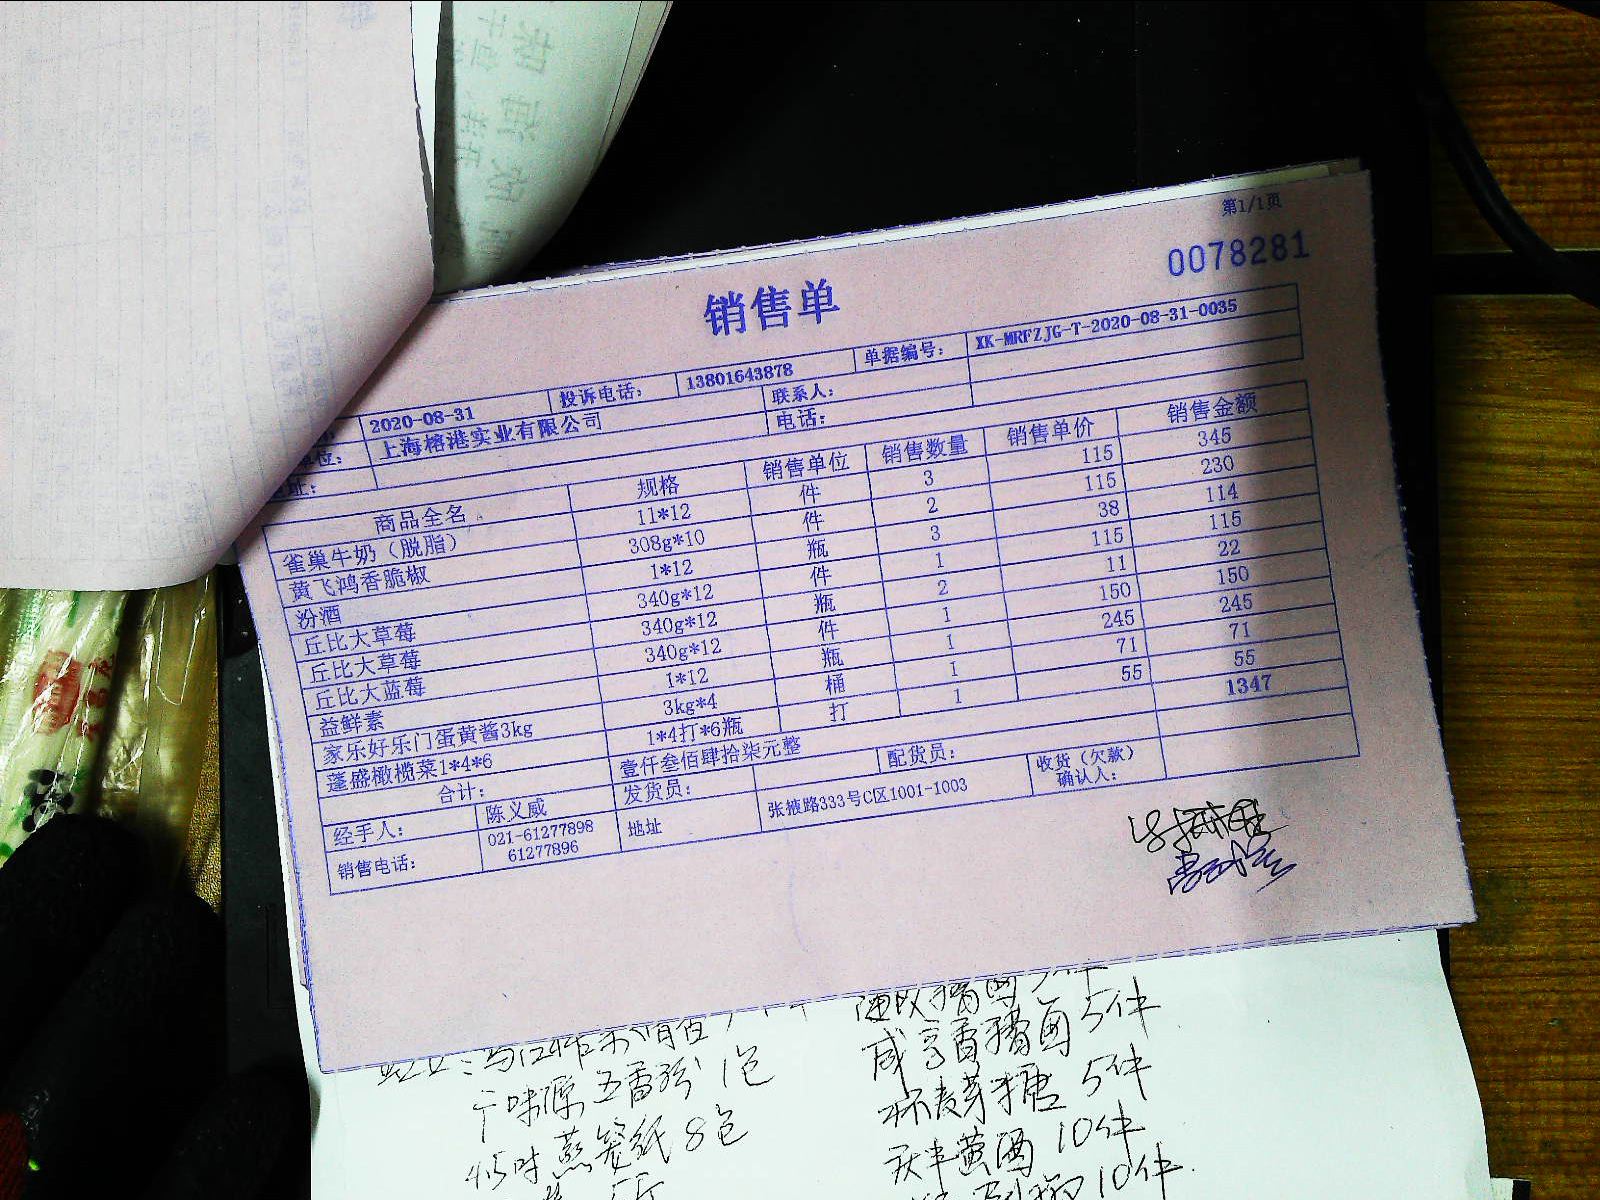 第1/1页
0078281
销售单
2020-08-31 投诉电话: 13801643878 单据编号: XK-MRFZJG-T-2020-08-31-0035
单位: 上海榕港实业有限公司 联系人:
址: 电话:
商品全名 规格 销售单位 销售数量 销售单价 销售金额
雀巢牛奶（脱脂） 11*12 件 3 115 345
黄飞鸿香脆椒 308g*10 件 2 115 230
汾酒 1*12 瓶 3 38 114
丘比大草莓 340g*12 件 1 115 115
丘比大草莓 340g*12 瓶 2 11 22
丘比大蓝莓 340g*12 件 1 150 150
益鲜素 1*12 瓶 1 245 245
家乐好乐门蛋黄酱3kg 3kg*4 桶 1 71 71
蓬盛橄榄菜1*4*6 1*4打*6瓶 打 1 55 55
合计: 壹仟叁佰肆拾柒元整 1347
经手人: 陈义威 发货员: 配货员: 收货（欠款）确认人:
销售电话: 021-61277898 61277896 地址 张掖路333号C区1001-1003
味源五香粉 1包
蒸笼纸 8包
咸亨香糟卤 5件
麦芽糖 5件
黄酒 10件
10件